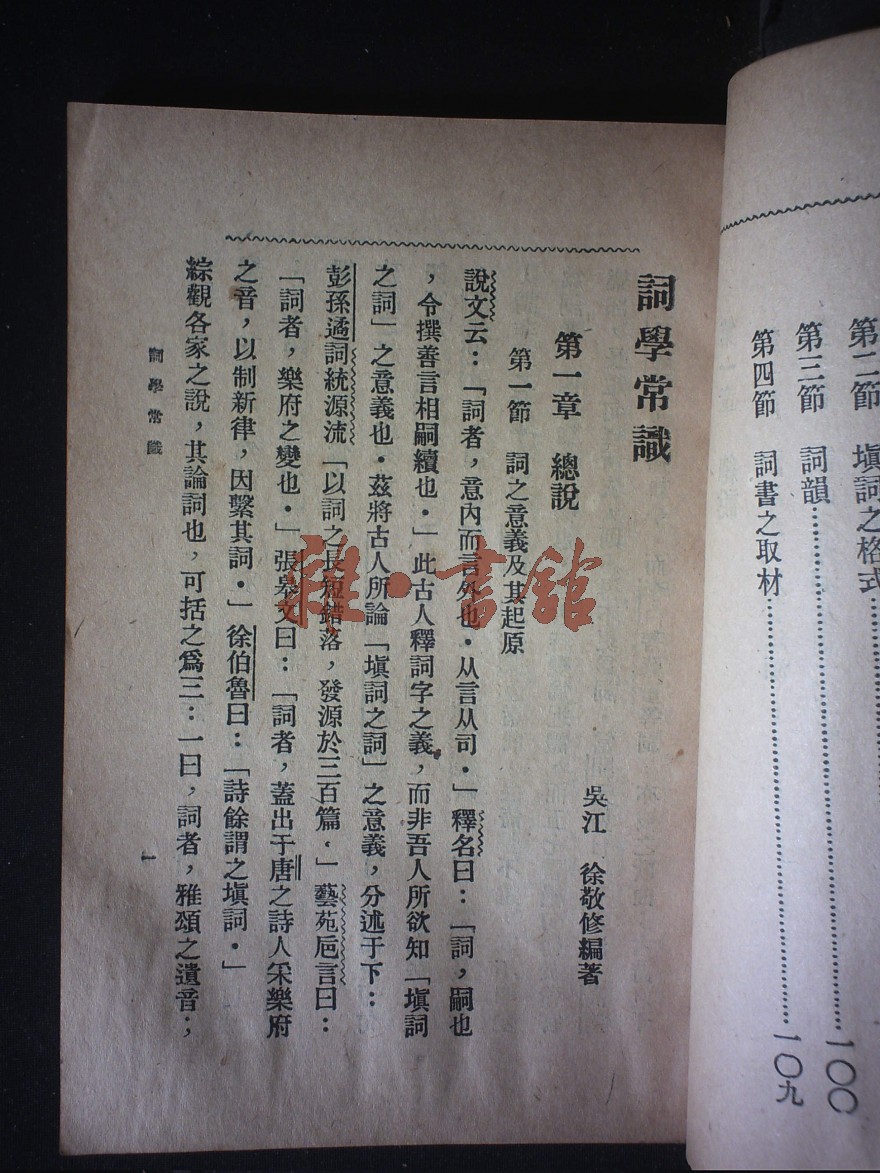 第二節　塡詞之格式
第三節　詞韻…………一〇〇
第四節　詞書之取材…………一〇九
詞學常識
吳江　徐敬修編著
第一章　總說
第一節　詞之意義及其起原
說文云：「詞者，意內而言外也．从言从司．」釋名曰：「詞，嗣也
，令撰善言相嗣續也．」此古人釋詞字之義，而非吾人所欲知「塡詞
之詞」之意義也．茲將古人所論「塡詞之詞」之意義，分述于下：
彭孫遹詞統源流「以詞之長短錯落，發源於三百篇．」藝苑卮言曰：
「詞者，樂府之變也．」張皋文曰：「詞者，蓋出于唐之詩人采樂府
之音，以制新律，因繫其詞．」徐伯魯曰：「詩餘謂之塡詞．」
綜觀各家之說，其論詞也，可括之爲三：一曰，詞者，雅頌之遺音；
詞學常識
一
雅·書館